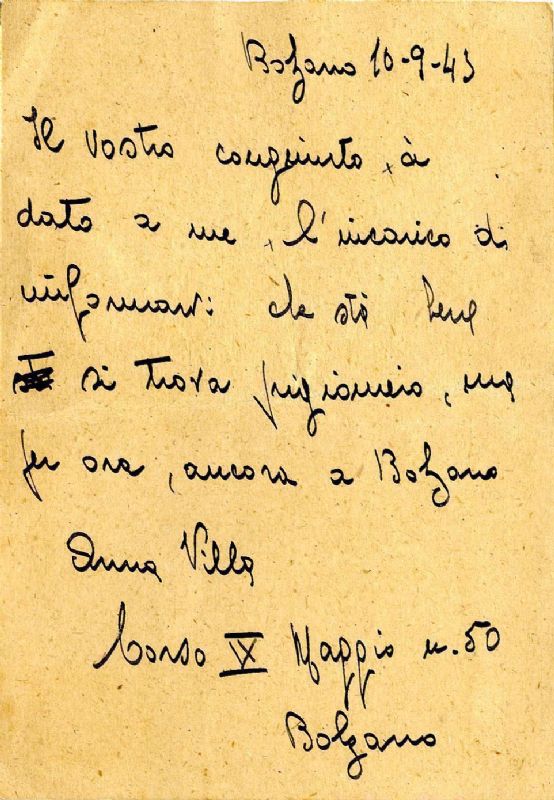 Bolzano 10-9-43
Il vostro congiunto, à
dato a me, l'incarico di
informarvi che stà bene
si trova prigioniero, ma
per ora, ancora a Bolzano
Anna Villa
Corso IX Maggio n. 50
Bolzano